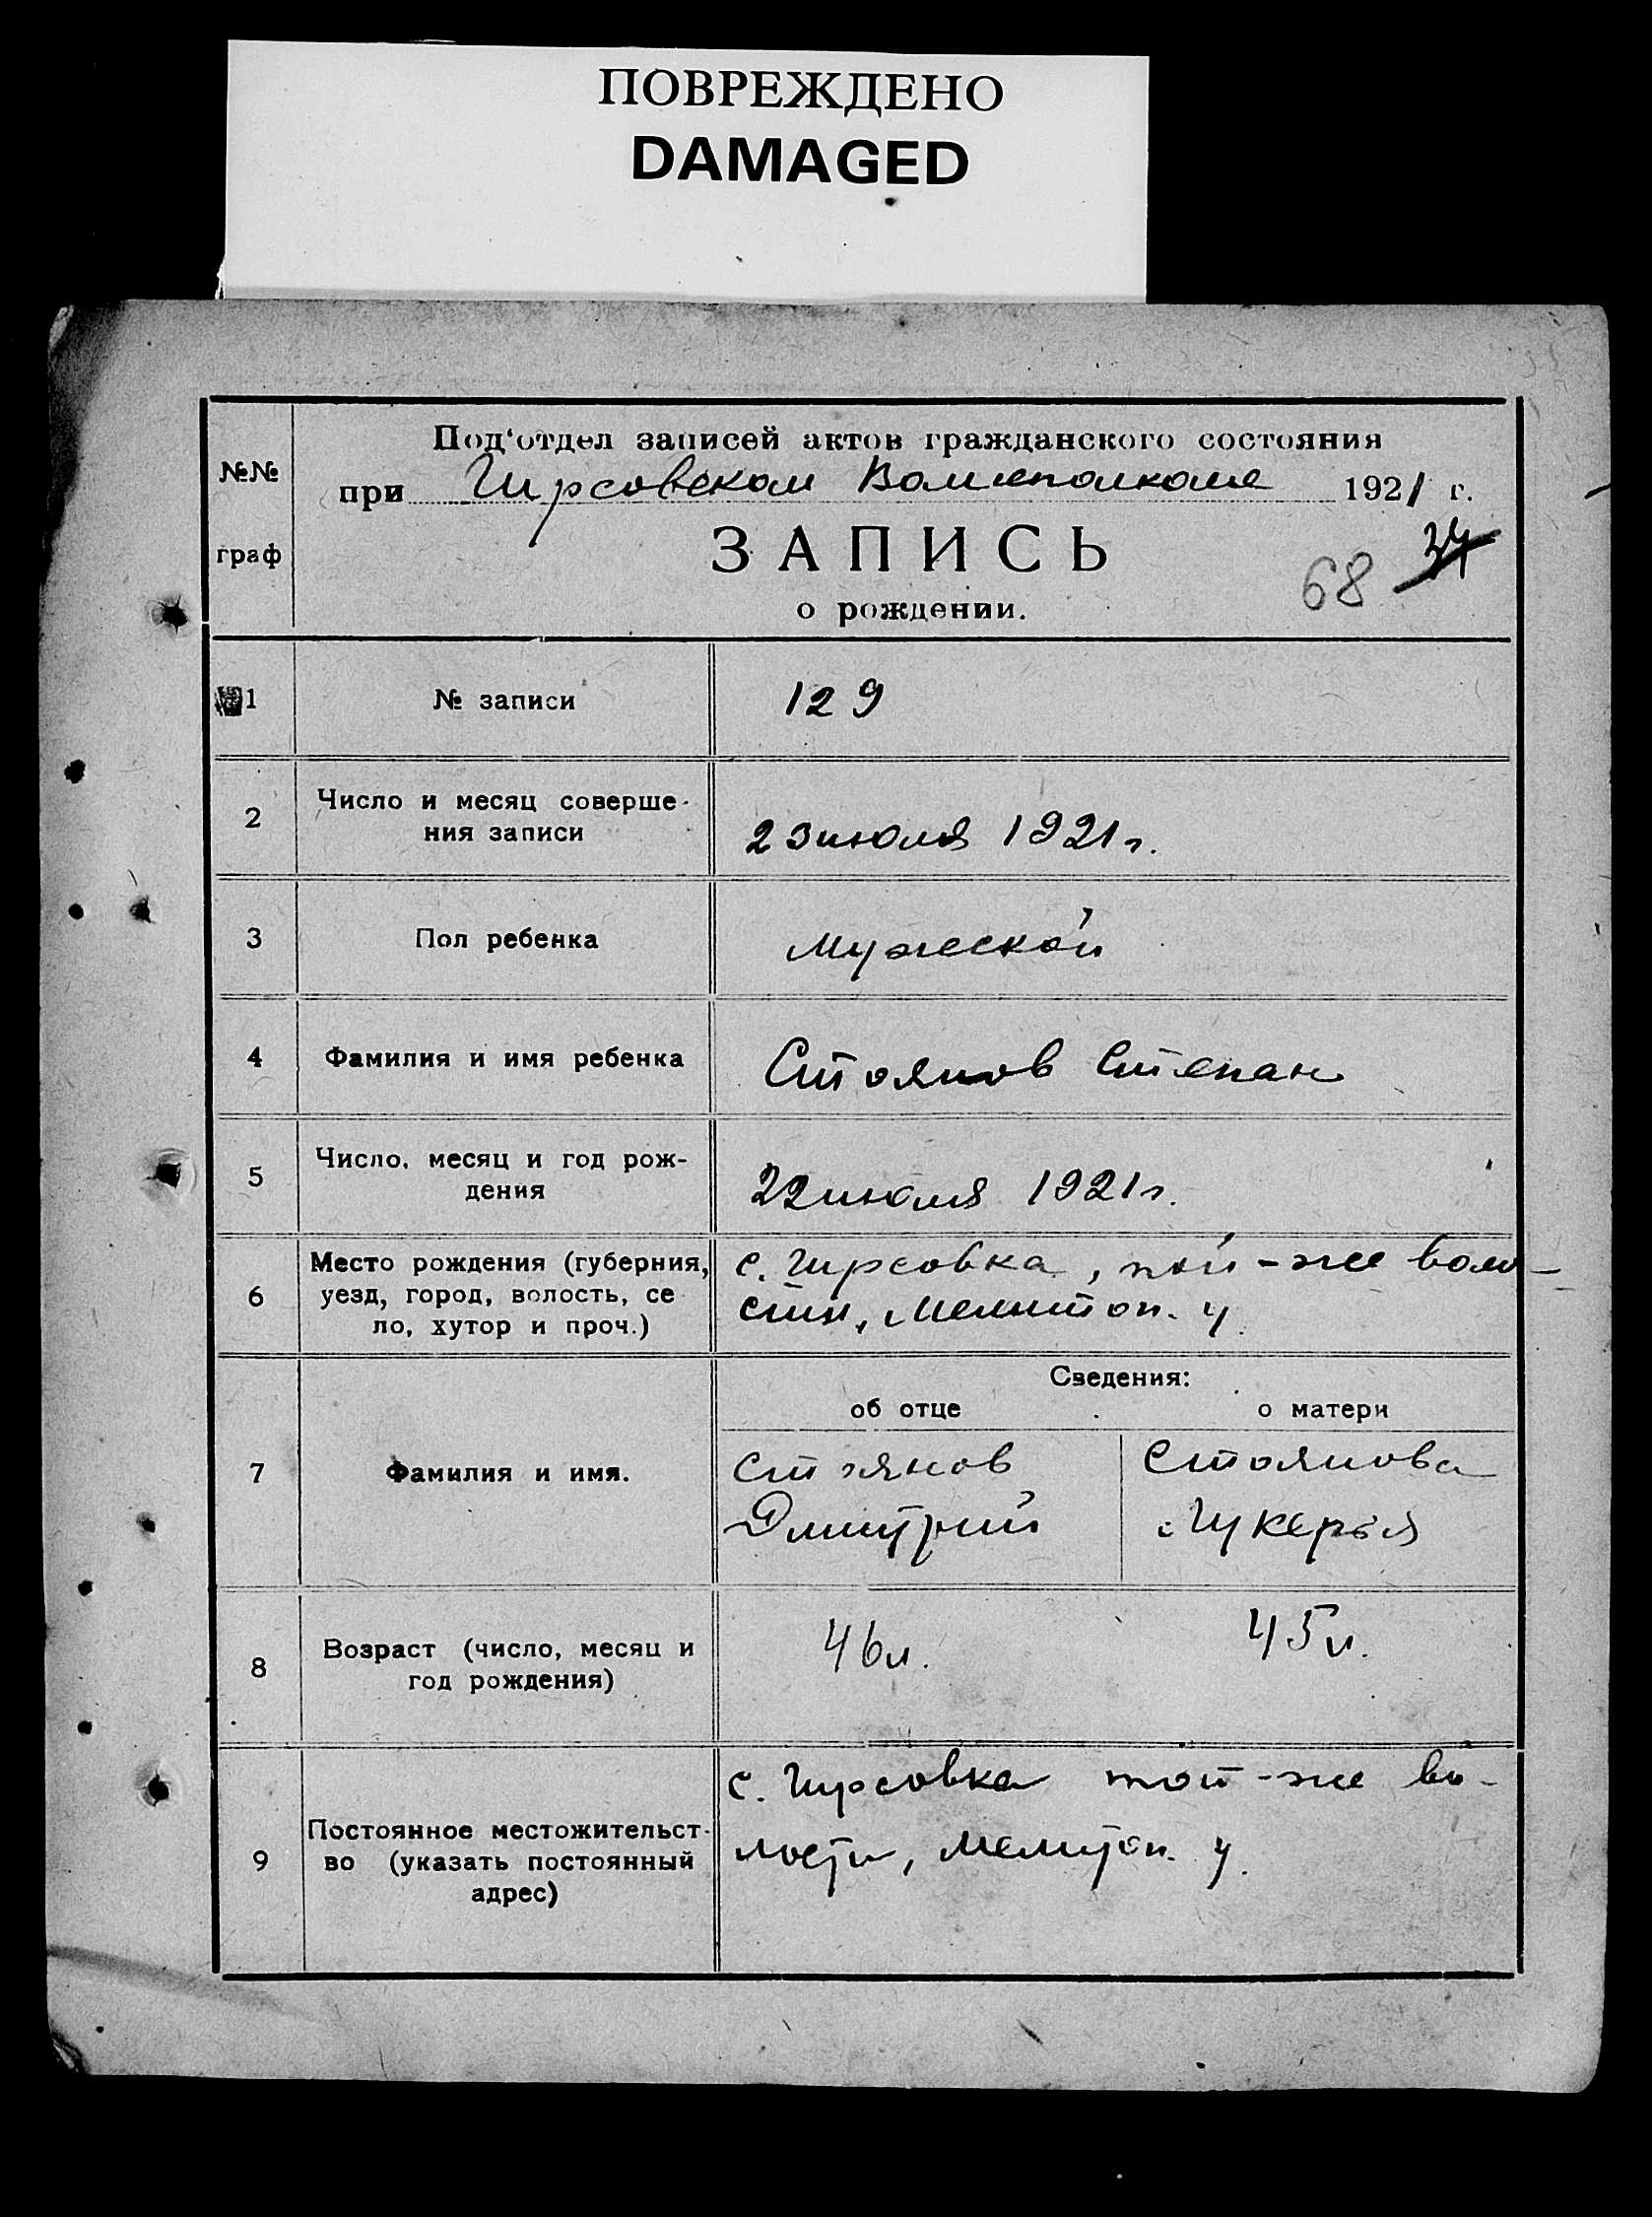 ПОВРЕЖДЕНО
DAMAGED
Под'отдел записей актов гражданского состояния
№№
при Гирсовском Волисполкоме 1921 г.
граф
ЗАПИСЬ
68 34
о рождении.
1 № записи 129
2 Число и месяц соверше-
ния записи 23 июля 1921 г.
3 Пол ребенка мужеской
4 Фамилия и имя ребенка Стоянов Степан
5 Число, месяц и год рож-
дения 22 июля 1921 г.
6 Место рождения (губерния,
уезд, город, волость, се
ло, хутор и проч.)
с. Гирсовка, той-же воло-
сти, Мелитоп. у.
Сведения:
об отце о матери
7 Фамилия и имя.
Стоянов Стоянова
Дмитрий Лукерья
8 Возраст (число, месяц и
год рождения)
46 л. 45 л.
9 Постоянное местожительст-
во (указать постоянный
адрес)
с. Гирсовка той-же во-
лости, Мелитоп. у.